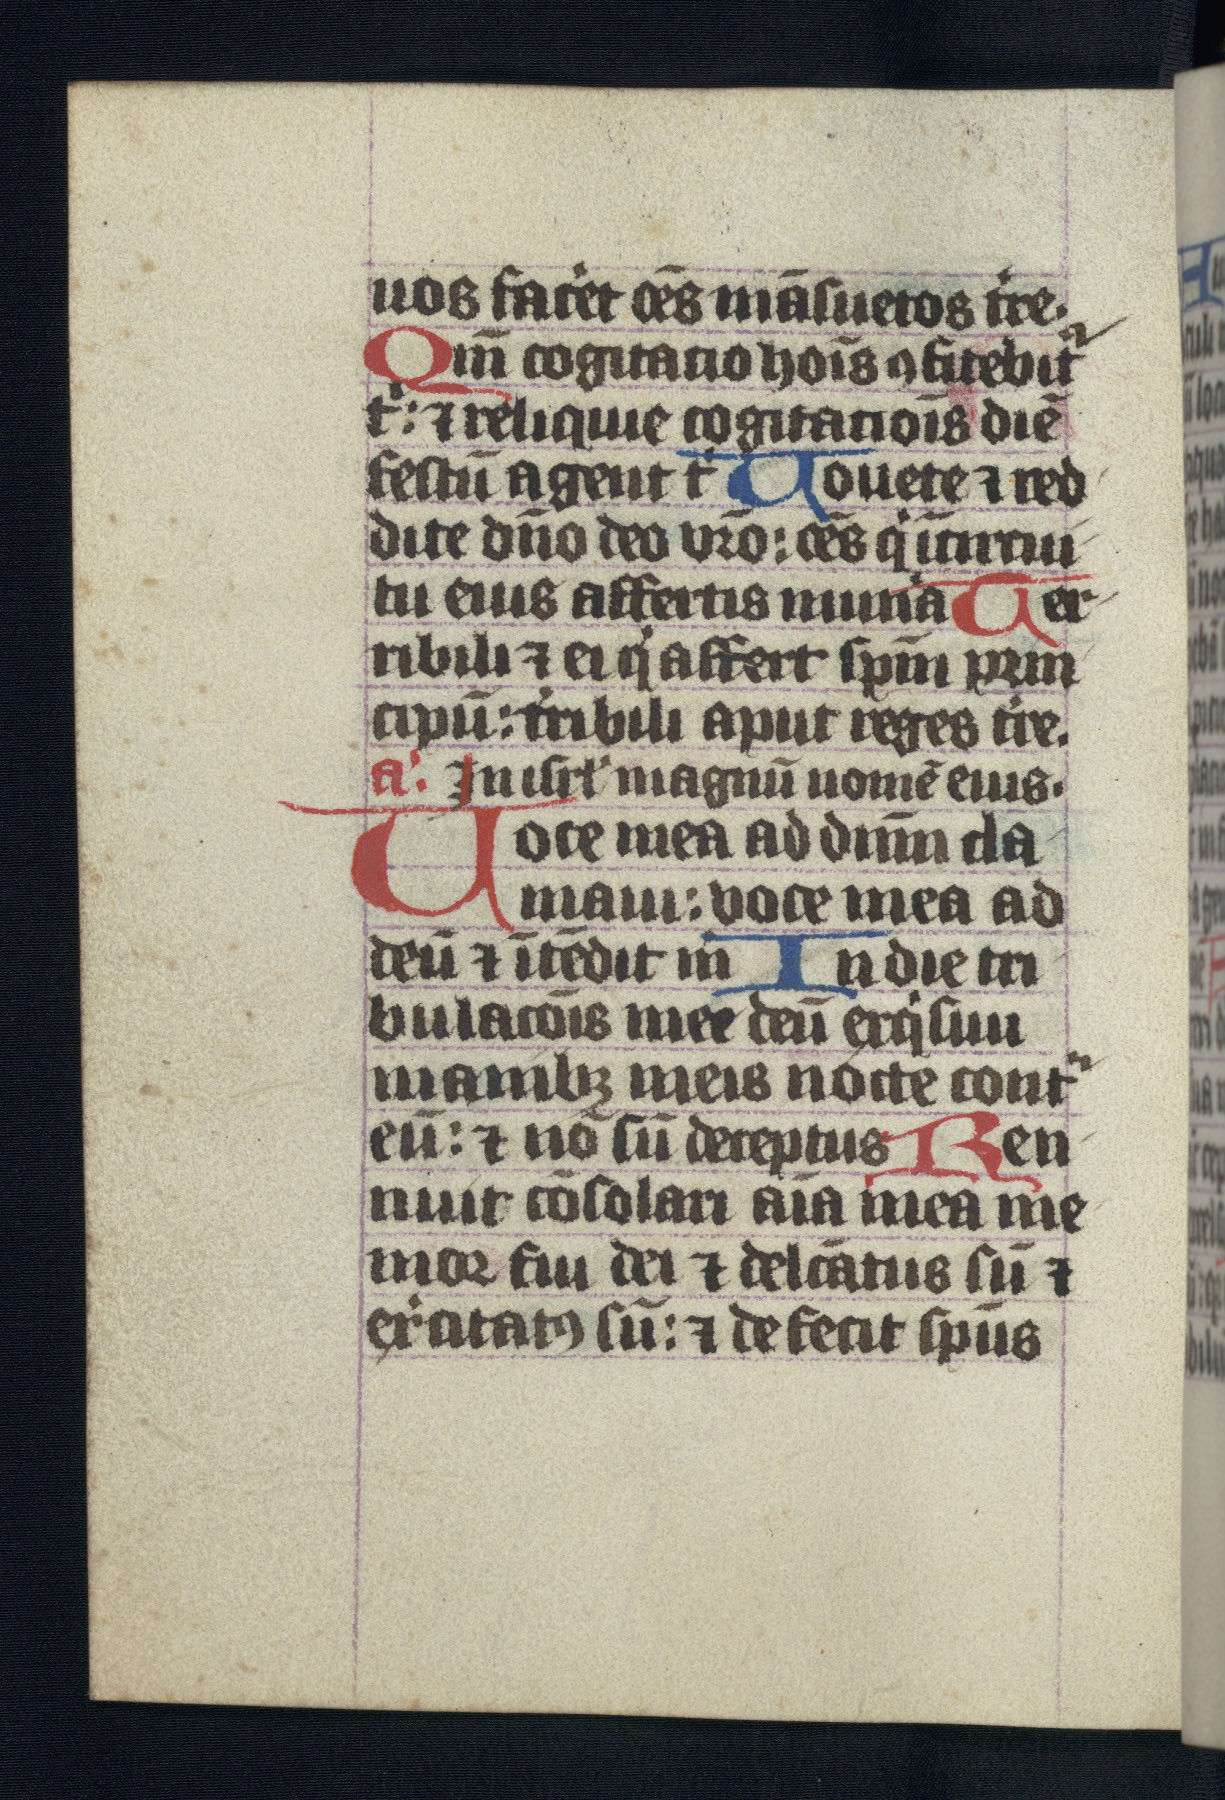 uos facet oēs māsuetos tre.
Qm̄ cogitatio hoīs ꝯfitebit᷑
t: ⁊ reliquie cogitatiōis diē
festū agent t Uouete ⁊ red
dite dn̄o deo vr̄o: oēs q īcircui
tu eius affertis muna Ter
ribili ⁊ ei q affert spm̄ prin
cipū: tribili aput reges tre.
a. In isrl magnū nomē eius.
Uoce mea ad dmn̄ cla
maui: voce mea ad
deū ⁊ ītēdit m In die tri
bulacōis mee deū exqsiui
manibꝫ meis nocte cont
eū: ⁊ nō sū deceptus Ren
nuit cōsolari aīa mea me
mor fui dei ⁊ delcātus sū ⁊
exercitatꝰ sū: ⁊ defecit spūs